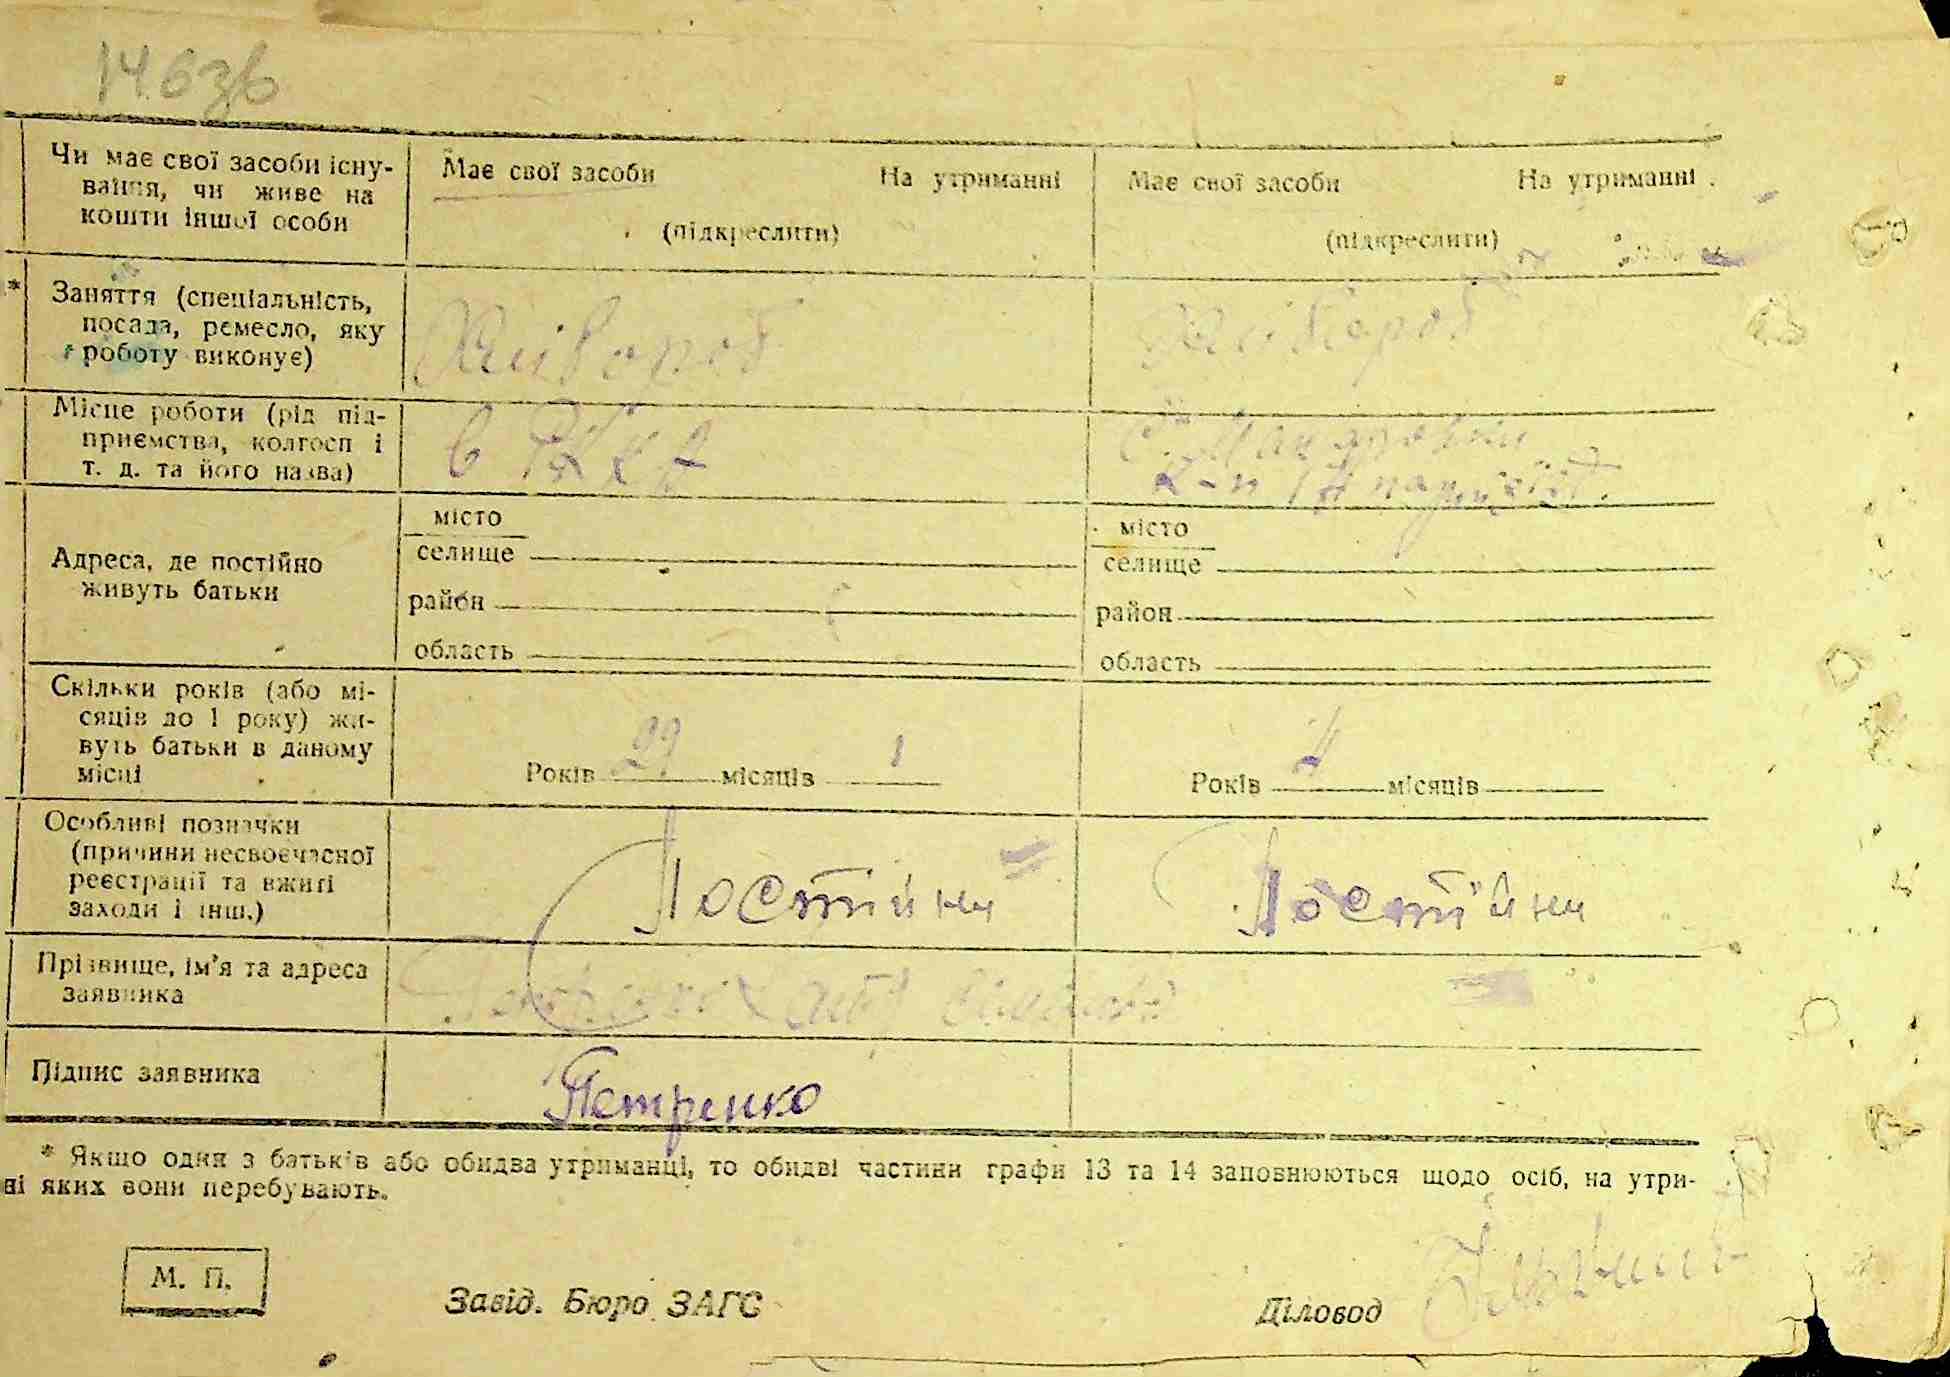 14 63в
Чи має свої засоби існу-
вання, чи живе на
кошти іншої особи
Має свої засоби На утриманні
(підкреслити)
Має свої засоби На утриманні
(підкреслити)
* Заняття (спеціальність,
посада, ремесло, яку
роботу виконує)
Хлібороб
Хлібороб
Місце роботи (рід під-
приємства, колгосп і
т. д. та його назва)
в РККА
Адреса, де постійно
живуть батьки
місто
селище
район
область
місто
селище
район
область
Скільки років (або мі-
сяців до 1 року) жи-
вуть батьки в даному
місці
Років 29 місяців 1
Років 4 місяців
Особливі позначки
(причини несвоєчасної
реєстрації та вжиті
заходи і інш.)
Постійни
Постійни
Прізвище, ім'я та адреса
заявника
Підпис заявника
Петренко
* Якщо одня з батьків або обидва утриманці, то обидві частини графи 13 та 14 заповнюються щодо осіб, на утри-
ні яких вони перебувають.
М. П.
Завід. Бюро ЗАГС
Діловод